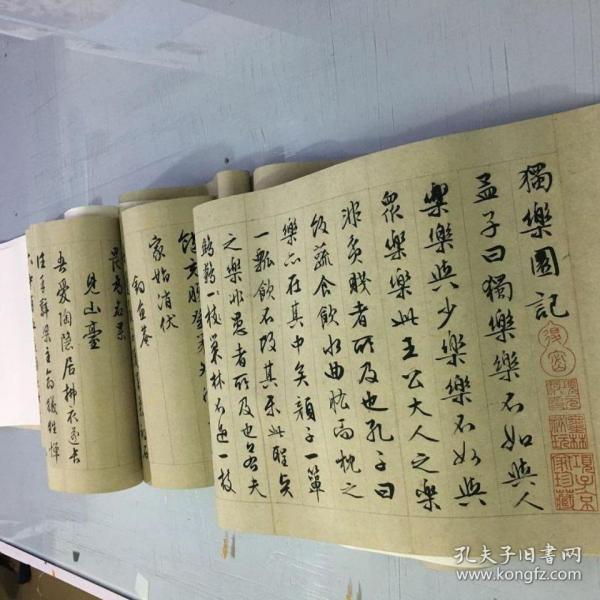 獨樂園記
孟子曰獨樂樂不如與人
樂樂與少樂樂不如與
衆樂樂此王公大人之樂
非貧賤者所及也孔子曰
飯蔬食飲水曲肱而枕之
樂亦在其中矣顏子一簞
一瓢飲不改其樂此聖賢
之樂非愚者所及也若夫
鷦鷯一枝巢林不過一枝
家始消伏
釣魚菴
見山臺
吾愛陶隱居拂衣遂長
往手辭梁主命犧牲憚
項子京
家珍藏
孔夫子旧书网
www.kongfz.com